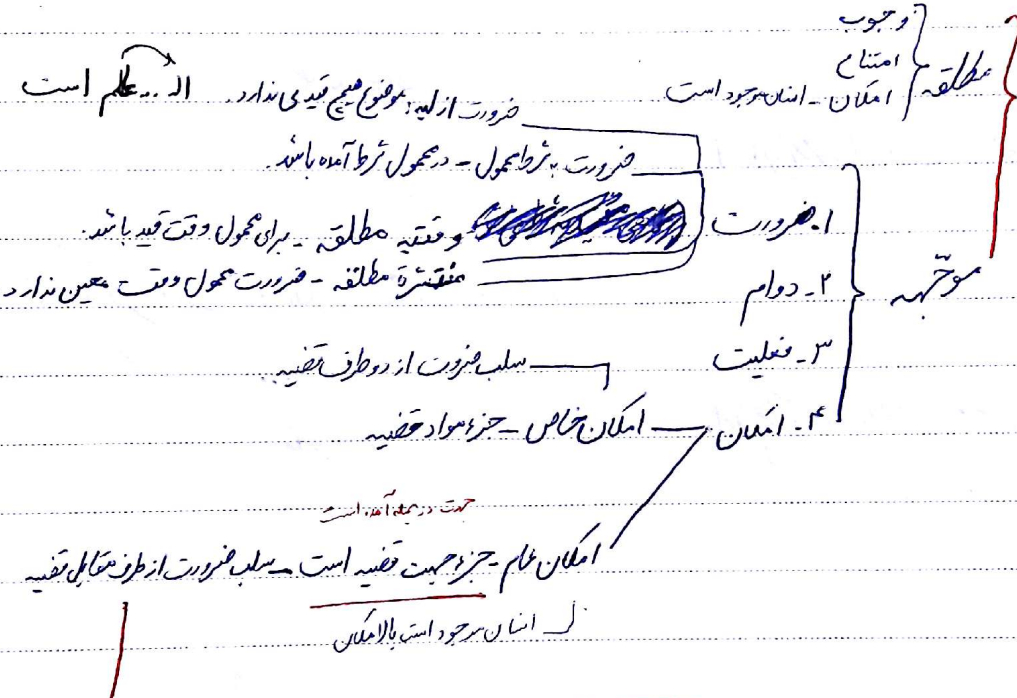 وجوب
امتناع
مطلقه
امکان - انسان موجود است
ضرورت ازلیه: موضوع هیچ قیدی ندارد. الله عالم است
ضرورت به شرط محمول - در محمول شرط آمده باشد.
۱. ضرورت
وقتیه مطلقه - برای محمول وقت قید باشد.
منتشرة مطلقه - ضرورت محمول وقت معین ندارد
موجّهه
۲- دوام
۳- فعلیت
سلب ضرورت از دو طرف قضیه
۴- امکان
امکان خاص - جزء مواد قضیه
جهت در جمله آمده است
امکان عام - جزء جهت قضیه است - سلب ضرورت از طرف مقابل قضیه
انسان موجود است بالامکان